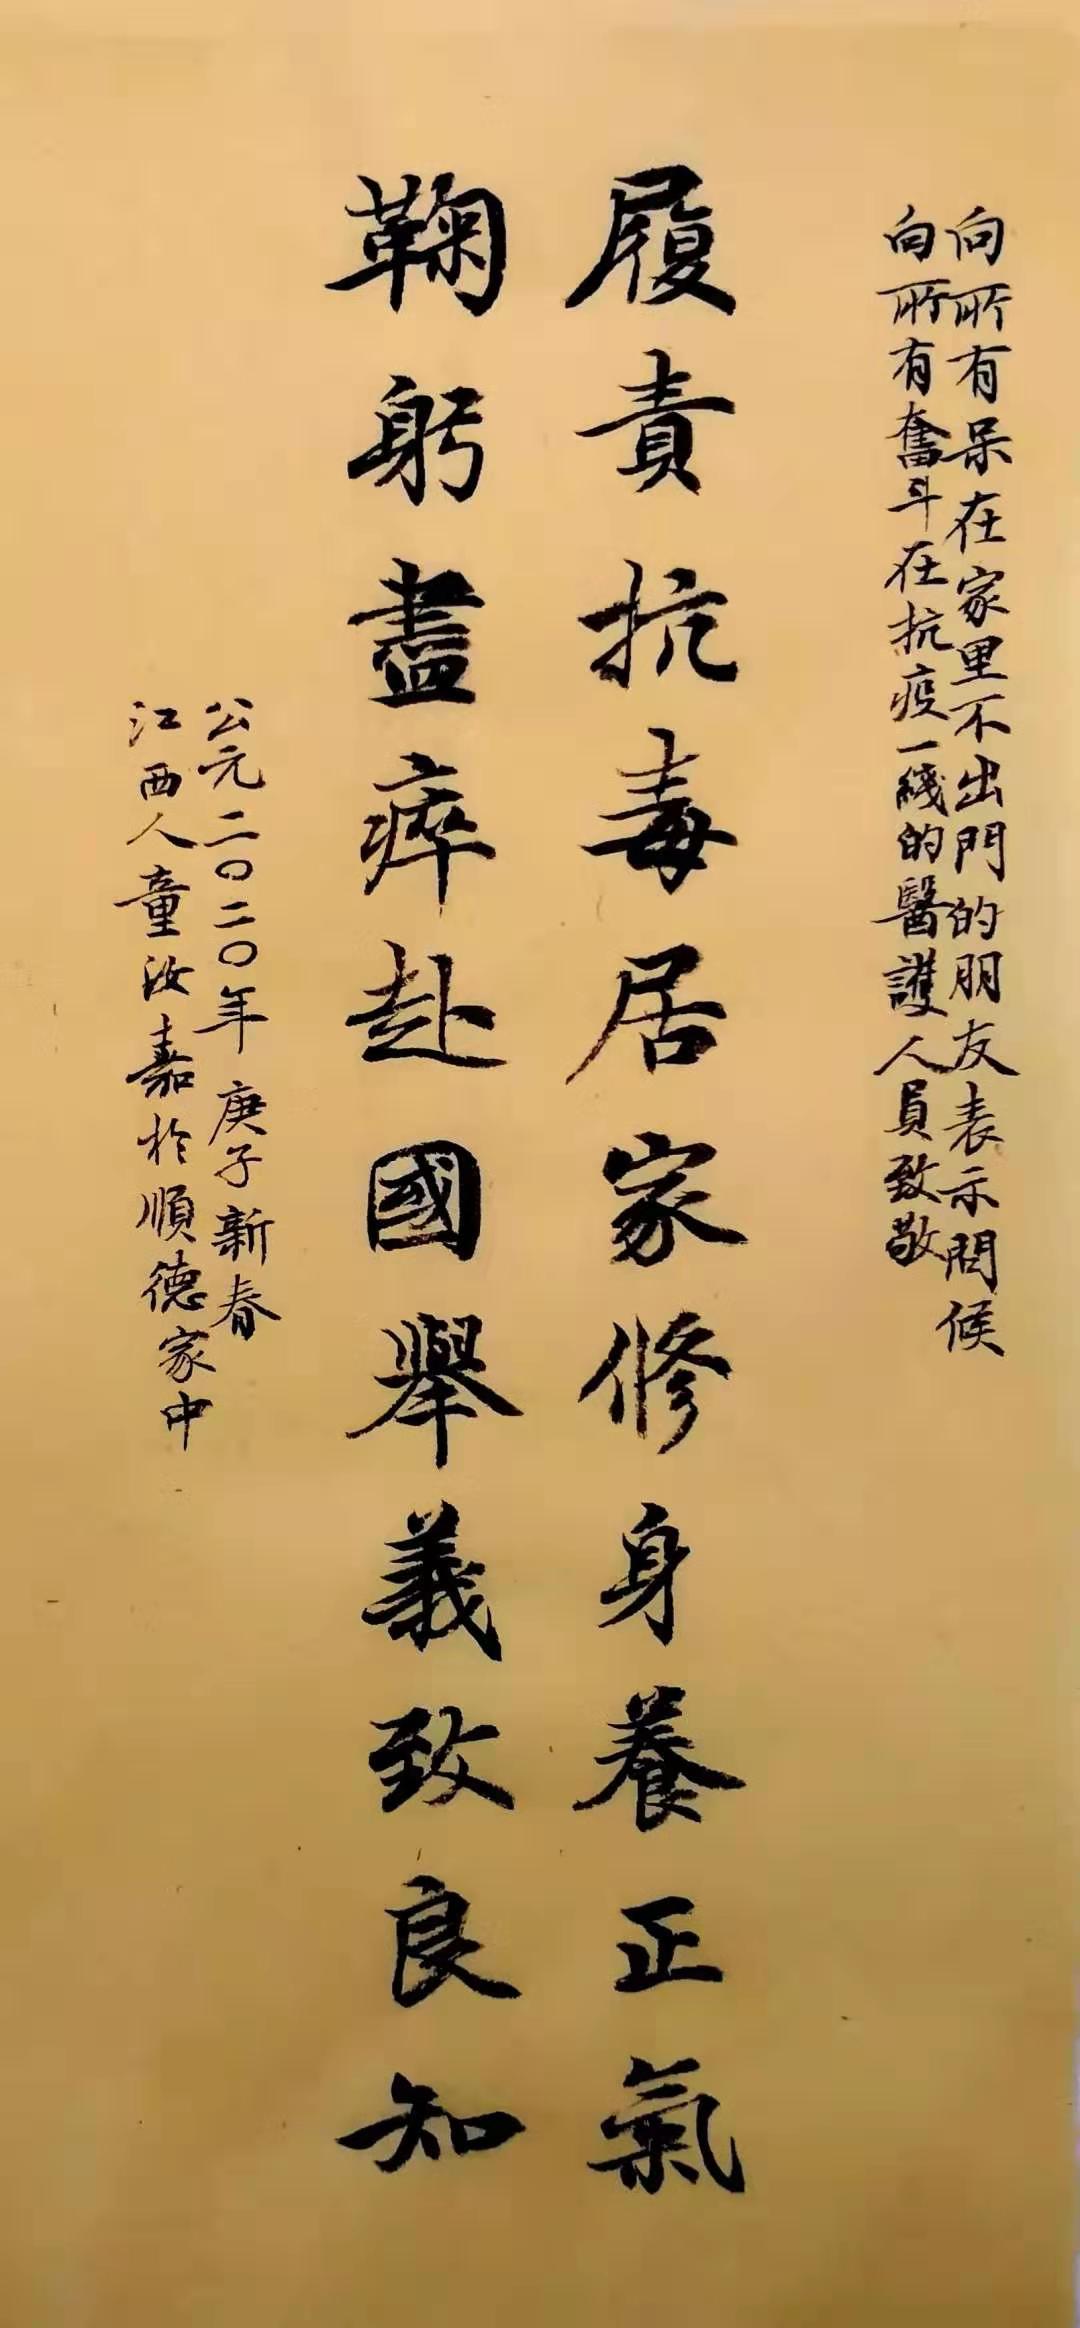 向所有呆在家里不出門的朋友表示問候
向所有奮斗在抗疫一綫的醫護人員致敬
履責抗毒居家修身養正氣
鞠躬盡瘁赴國舉義致良知
公元二〇二〇年庚子新春
江西人童汝嘉於順德家中